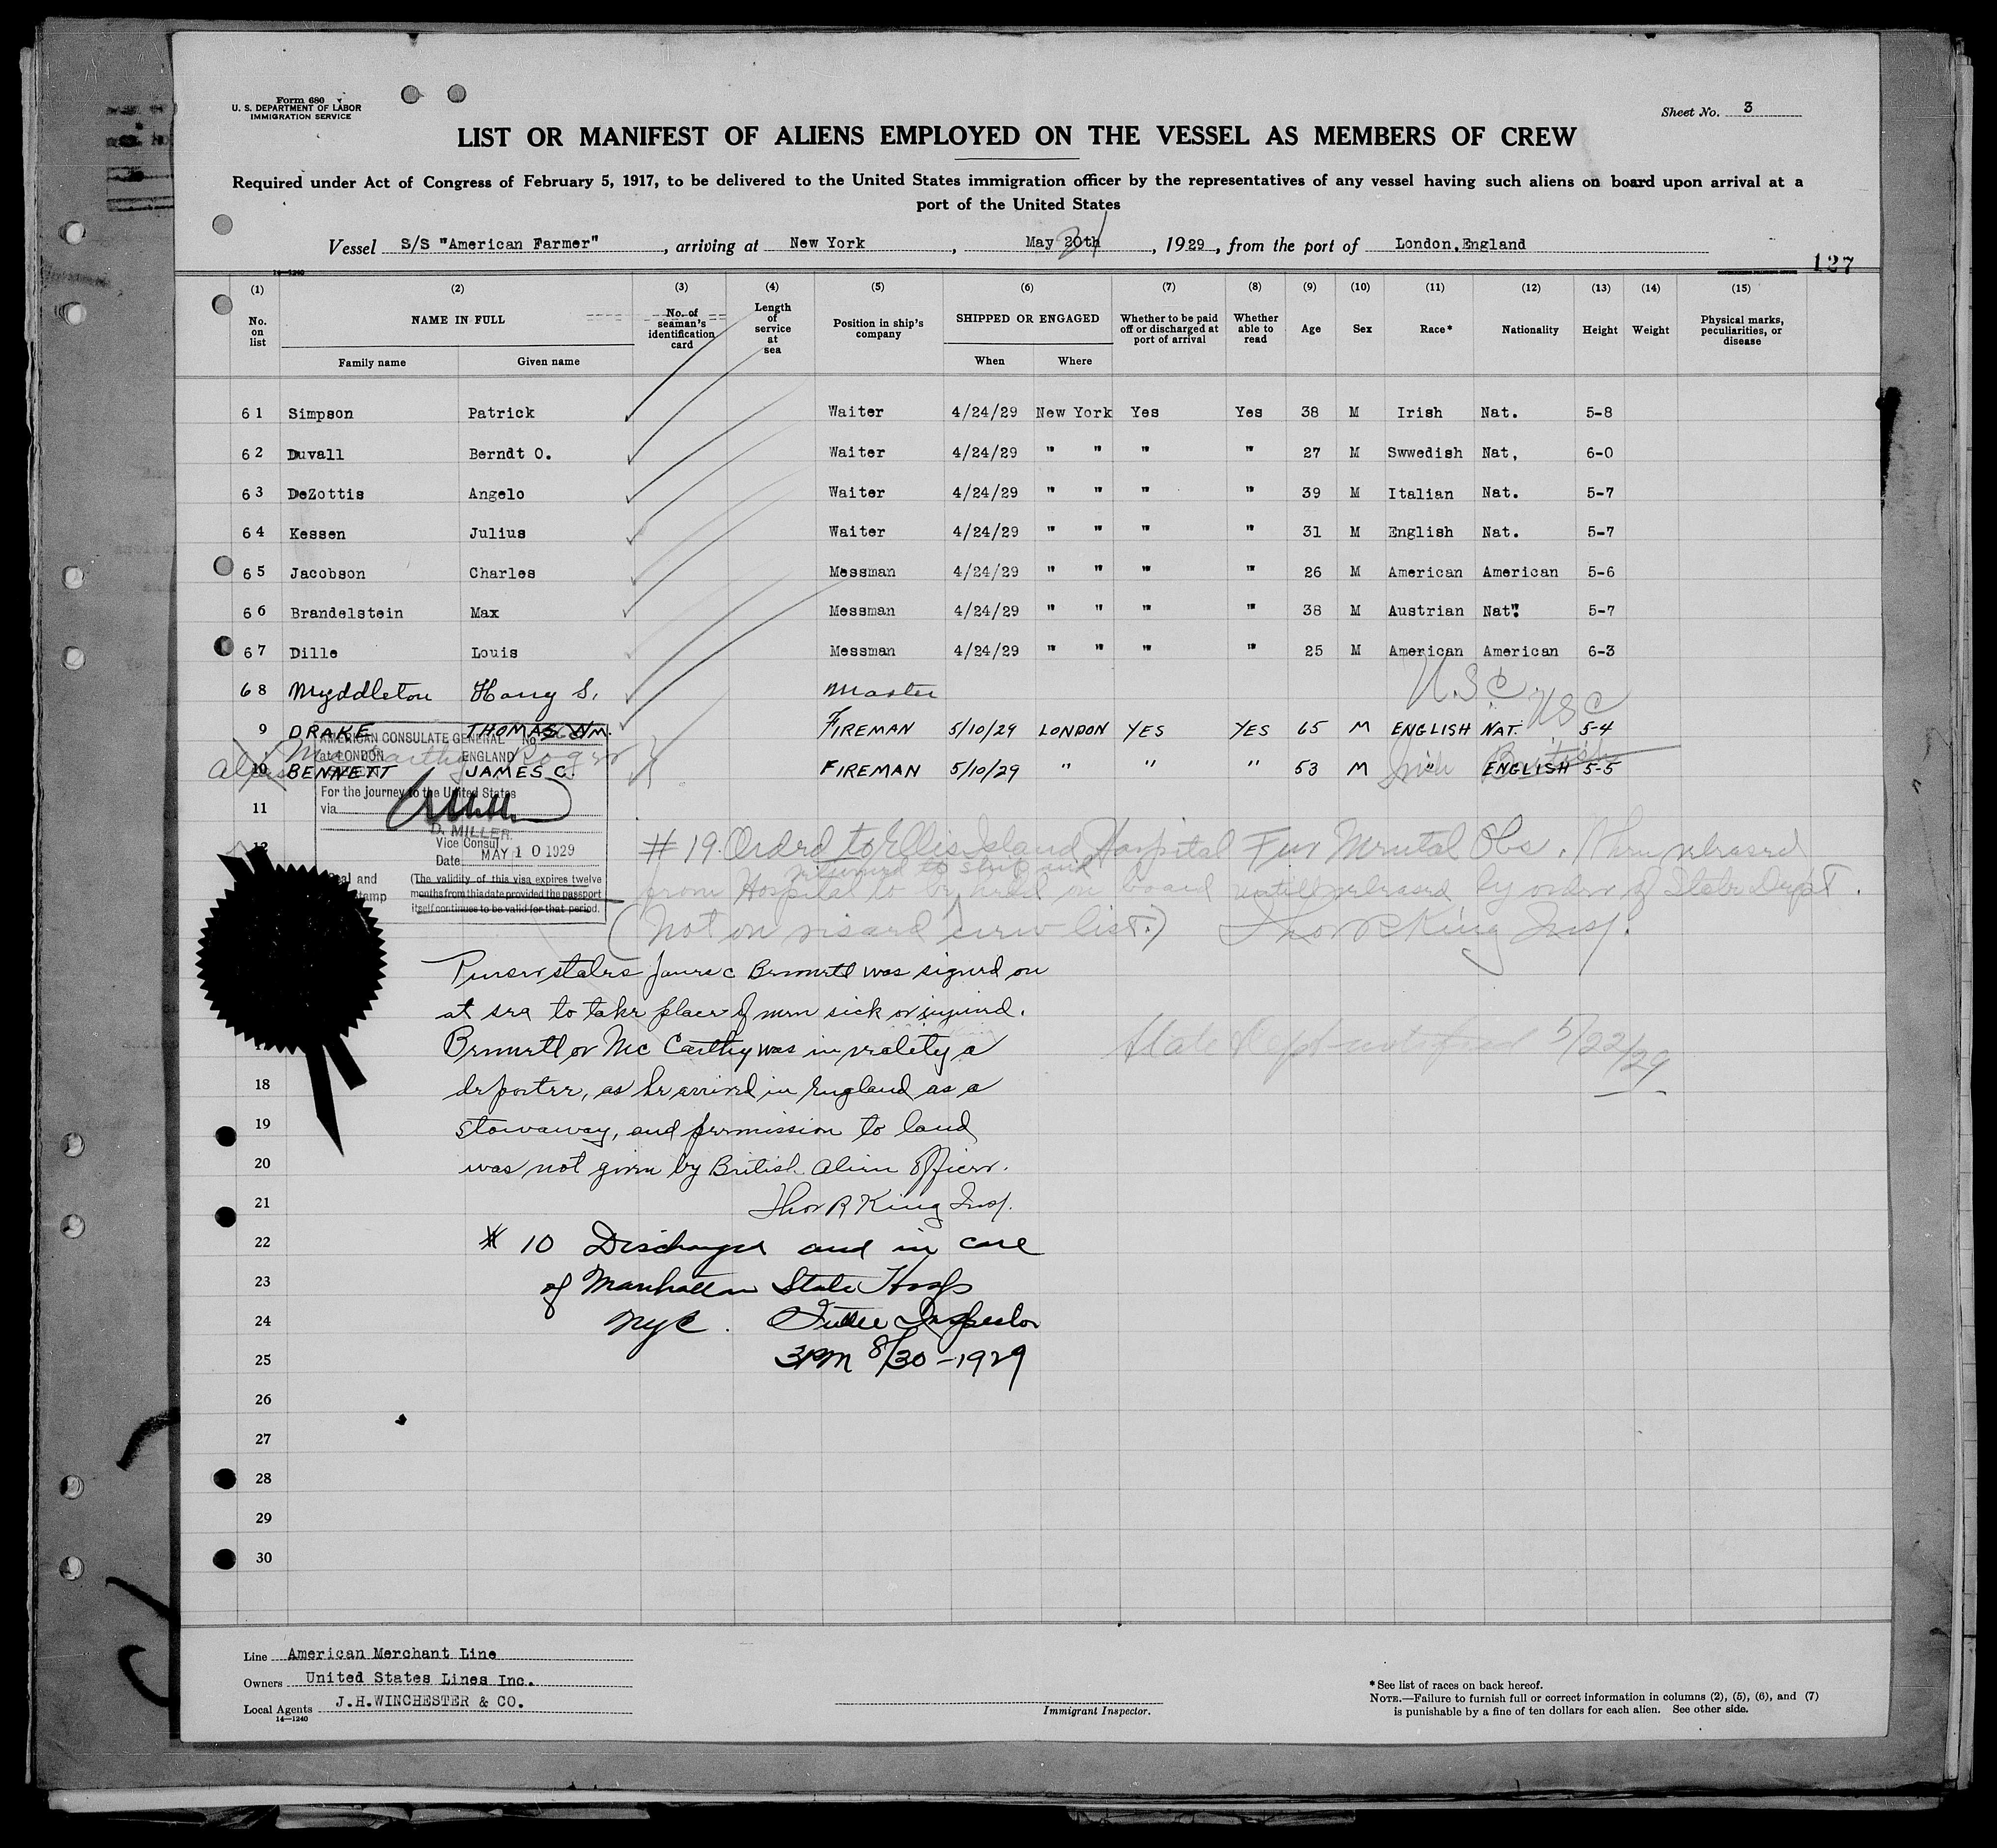 Form 680
U. S. DEPARTMENT OF LABOR
IMMIGRATION SERVICE
Sheet No. 3
LIST OR MANIFEST OF ALIENS EMPLOYED ON THE VESSEL AS MEMBERS OF CREW
Required under Act of Congress of February 5, 1917, to be delivered to the United States immigration officer by the representatives of any vessel having such aliens on board upon arrival at a
port of the United States
Vessel S/S "American Farmer", arriving at New York, May 20th 21, 1929, from the port of London,England
14—1240
127
(1) (2) (3) (4) (5) (6) (7) (8) (9) (10) (11) (12) (13) (14) (15)
No. on list NAME IN FULL Family name Given name No. of seaman's identification card Length of service at sea Position in ship's company SHIPPED OR ENGAGED When Where Whether to be paid off or discharged at port of arrival Whether able to read Age Sex Race* Nationality Height Weight Physical marks, peculiarities, or disease
61 Simpson Patrick Waiter 4/24/29 New York Yes Yes 38 M Irish Nat. 5-8
62 Duvall Berndt O. Waiter 4/24/29 " " " " 27 M Swwedish Nat, 6-0
63 DeZottis Angelo Waiter 4/24/29 " " " " 39 M Italian Nat. 5-7
64 Kessen Julius Waiter 4/24/29 " " " " 31 M English Nat. 5-7
65 Jacobson Charles Messman 4/24/29 " " " " 26 M American American 5-6
66 Brandelstein Max Messman 4/24/29 " " " " 38 M Austrian Nat". 5-7
67 Dille Louis Messman 4/24/29 " " " " 25 M American American 6-3
68 Myddleton Harry S. Master U.S.C.
9 DRAKE THOMAS WM. FIREMAN 5/10/29 LONDON YES YES 65 M ENGLISH NAT. USC 5-4
alias McCarthy Roger Irish British
10 BENNETT JAMES C. FIREMAN 5/10/29 " " " 53 M " ENGLISH 5-5
AMERICAN CONSULATE GENERAL No.
at LONDON ENGLAND
For the journey to the United States
11
via
D. MILLER.
Vice Consul
Date MAY 10 1929
Seal and
stamp
(The validity of this visa expires twelve
months from this date provided the passport
itself continues to be valid for that period.
12
# 19. Ordrd to Ellis Island Hospital For Mental Obs. Then released
returned to ship and
from Hospital to be held on board until released by order of State Dept.
(Not on visaed crew list.) Thos R King Insp.
Purser states James C Bennett was signed on
at sea to take place of men sick or injured.
Bennett or McCarthy was in reality a
State Dept notified 5/22/29
18 deportee, as he arrived in England as a
19 stowaway, and permission to land
20 was not given by British Alien Officer.
21 Thos R King Insp.
22 # 10 Discharged and in care
23 of Manhattan State Hosp
24 NYC. Inspector
25 3PM 8/30-1929
26
27
28
29
30
Line American Merchant Line
Owners United States Lines Inc.
Local Agents J.H.WINCHESTER & CO.
14—1240
Immigrant Inspector.
* See list of races on back hereof.
NOTE.—Failure to furnish full or correct information in columns (2), (5), (6), and (7)
is punishable by a fine of ten dollars for each alien. See other side.